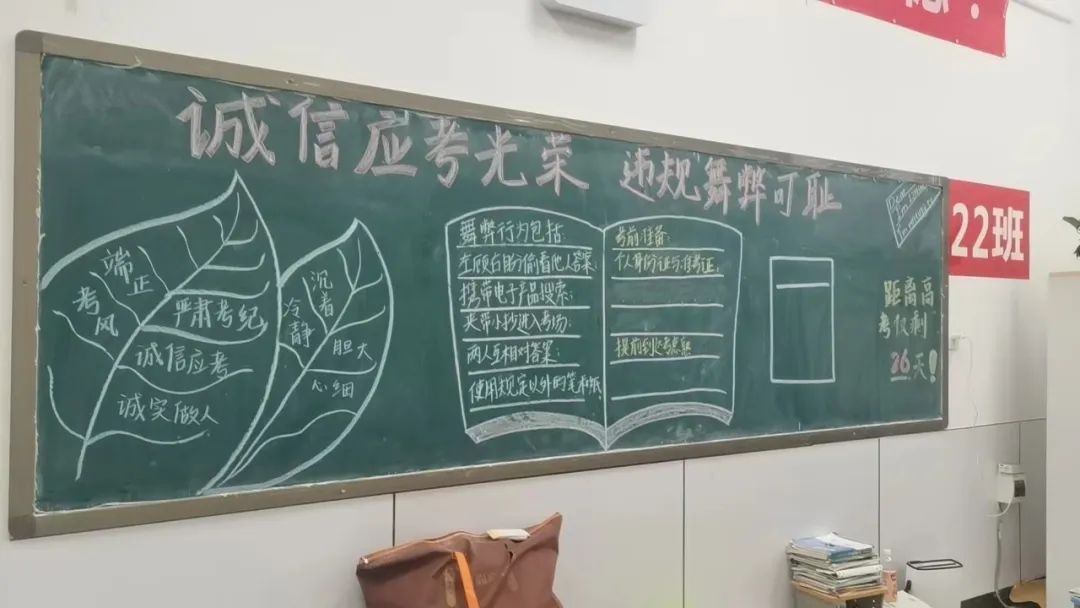 诚信应考光荣 违规舞弊可耻
端正
考风
严肃考纪
诚信应考
诚实做人
沉着
冷静
胆大
心细
舞弊行为包括：
左顾右盼偷看他人答案；
携带电子产品搜索；
夹带小抄进入考场；
两人互相对答案；
使用规定以外的笔和纸
考前准备：
个人身份证与准考证.
提前到达考点
距离高
考仅剩
26天！
22班